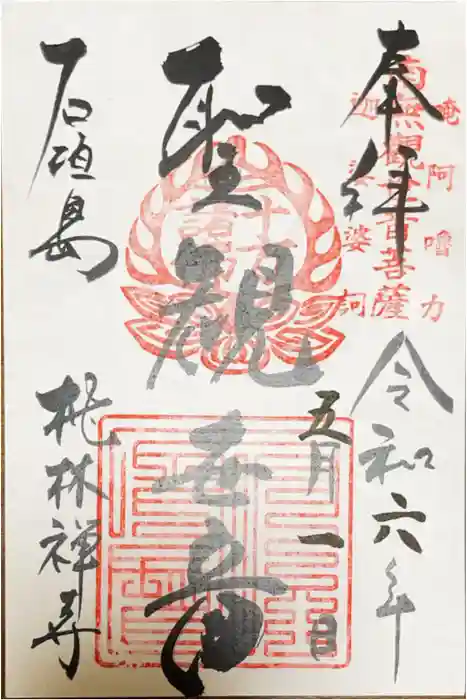 奉拝
令和六年
五月一日
南無觀世音菩薩
唵阿嚕力
迦娑婆訶
聖観世音
石垣島
桃林禅寺